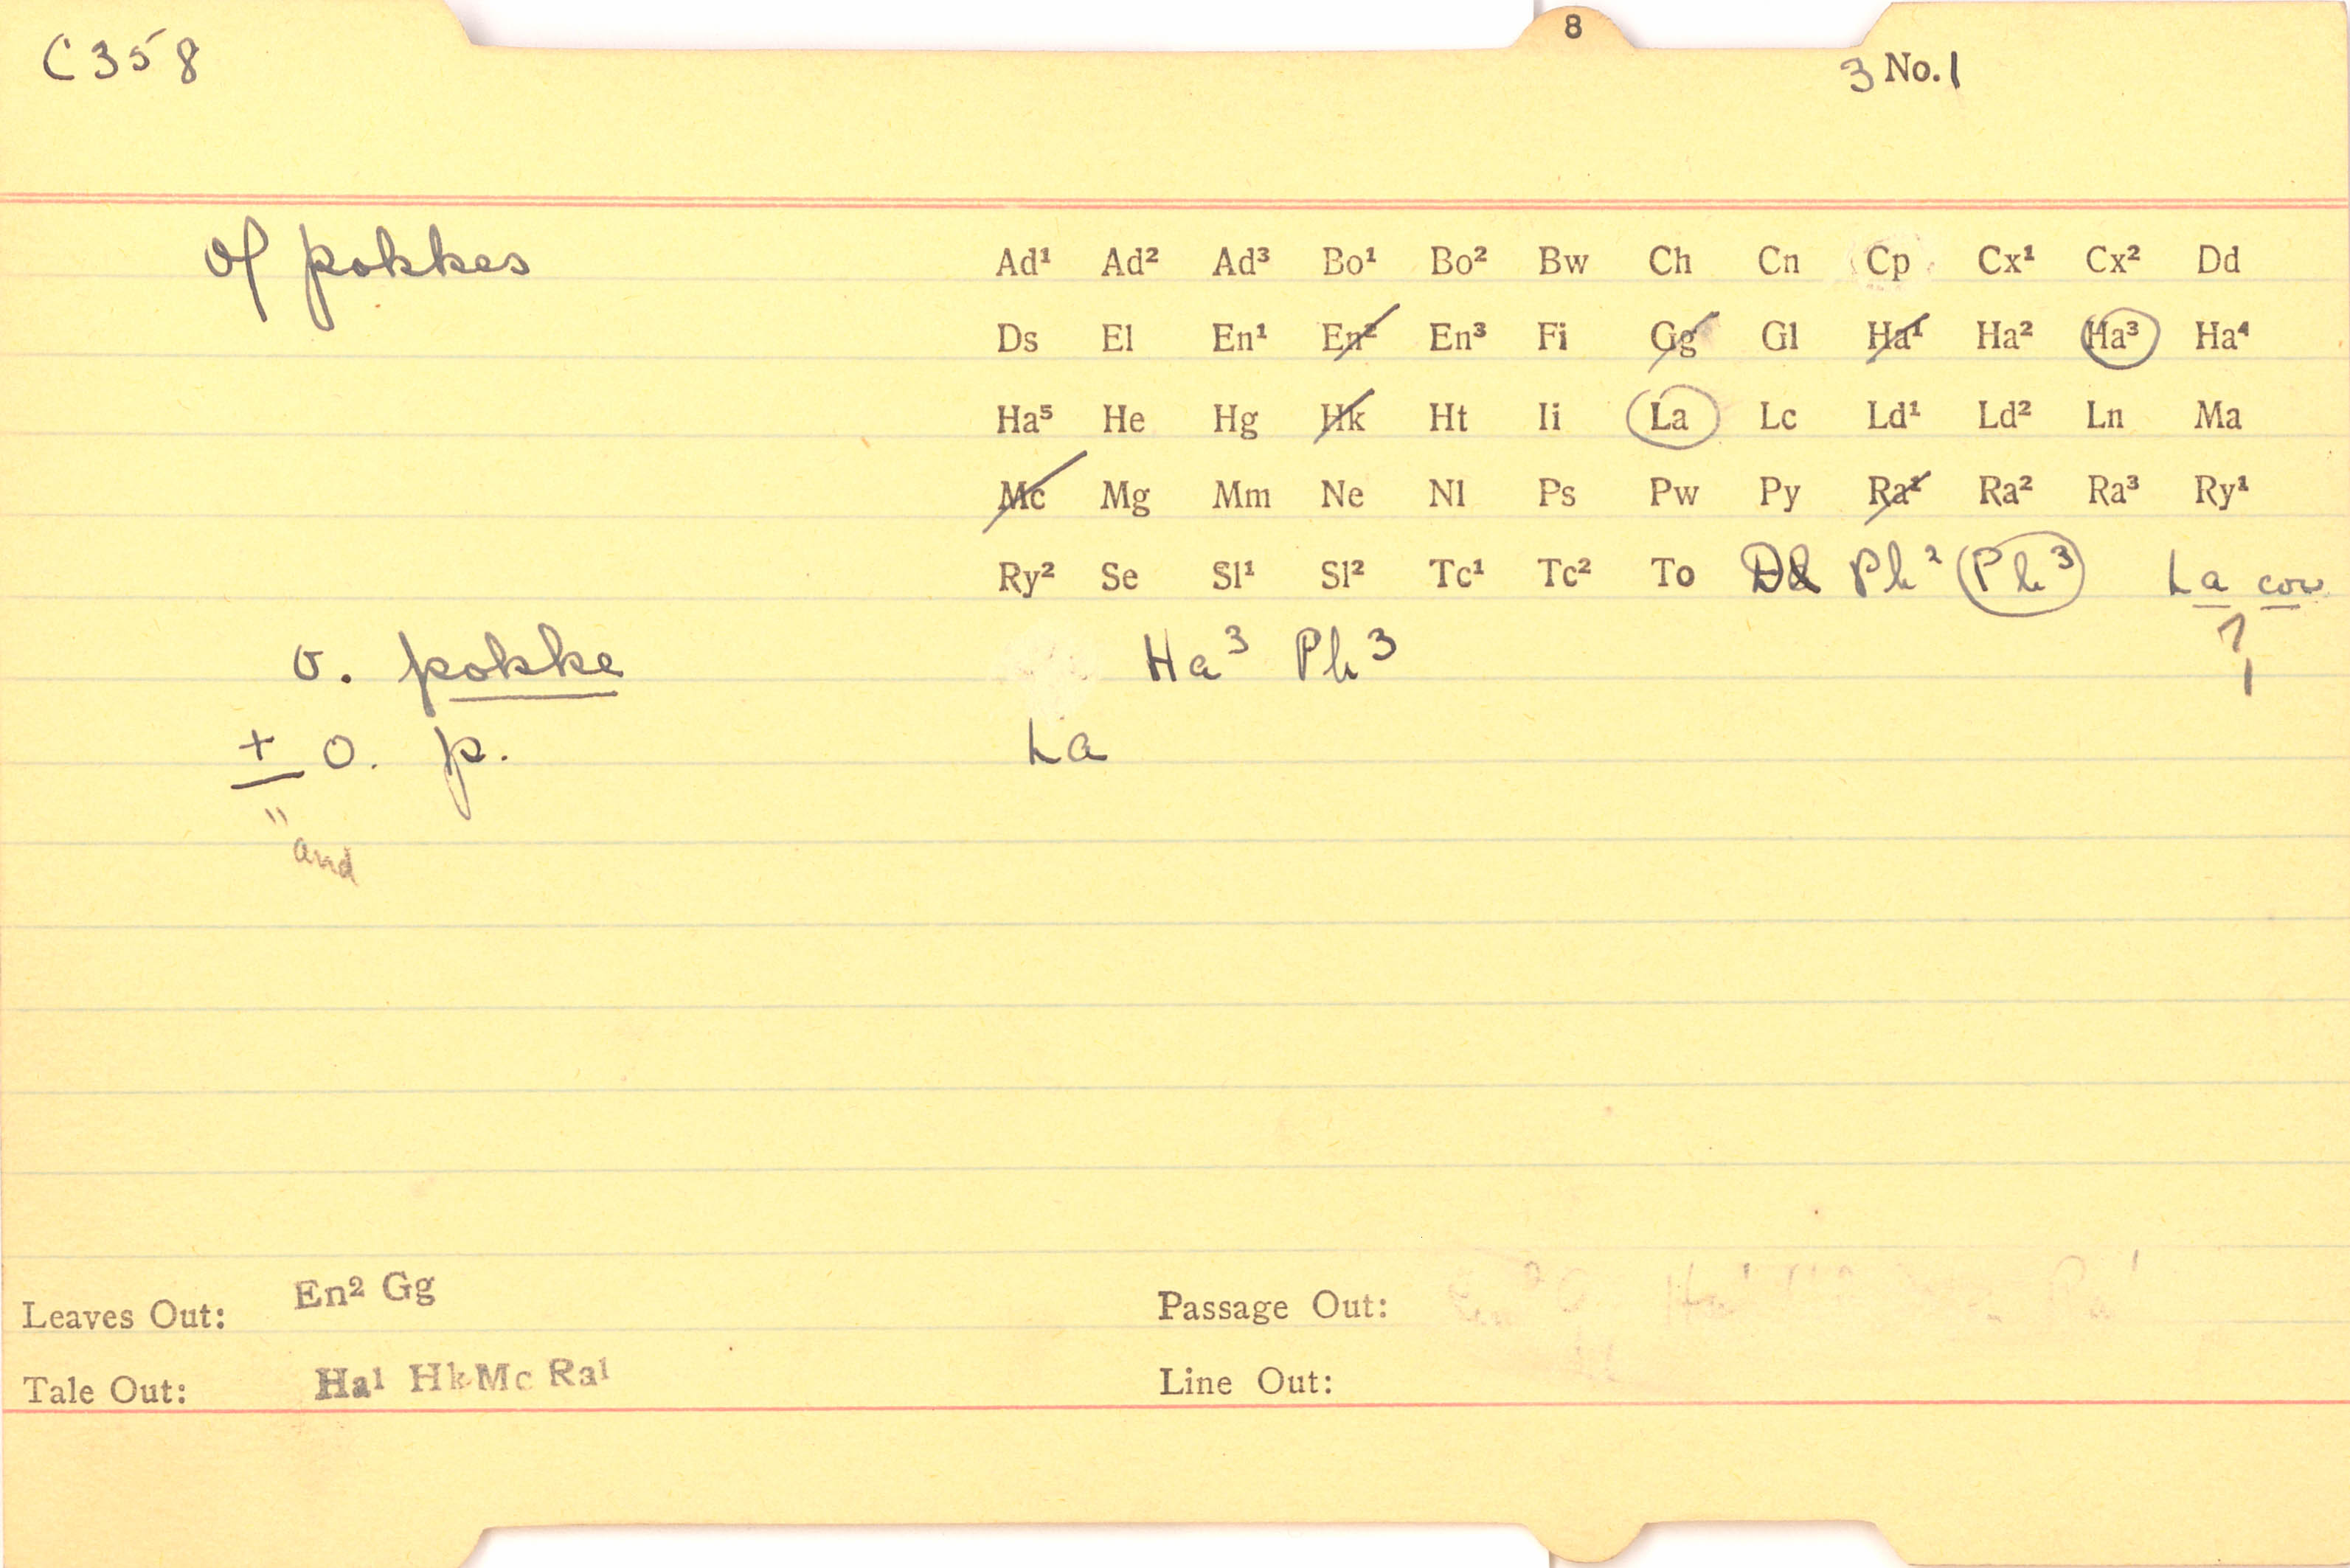 8
C358
3 No. 1
of pokkes
Ad¹ Ad² Ad³ Bo¹ Bo² Bw Ch Cn Cp Cx¹ Cx² Dd
Ds El En¹ En² En³ Fi Gg Gl Ha¹ Ha² Ha³ Ha⁴
Ha⁵ He Hg Hk Ht Ii La Lc Ld¹ Ld² Ln Ma
Mc Mg Mm Ne Nl Ps Pw Py Ra¹ Ra² Ra³ Ry¹
Ry² Se Sl¹ Sl² Tc¹ Tc² To Dl Ph² Ph³ La cor
?
o. pokke Ha³ Ph³
+ o. p. La
" and
Leaves Out: En² Gg
Passage Out:
Tale Out: Ha¹ Hk Mc Ra¹
Line Out: